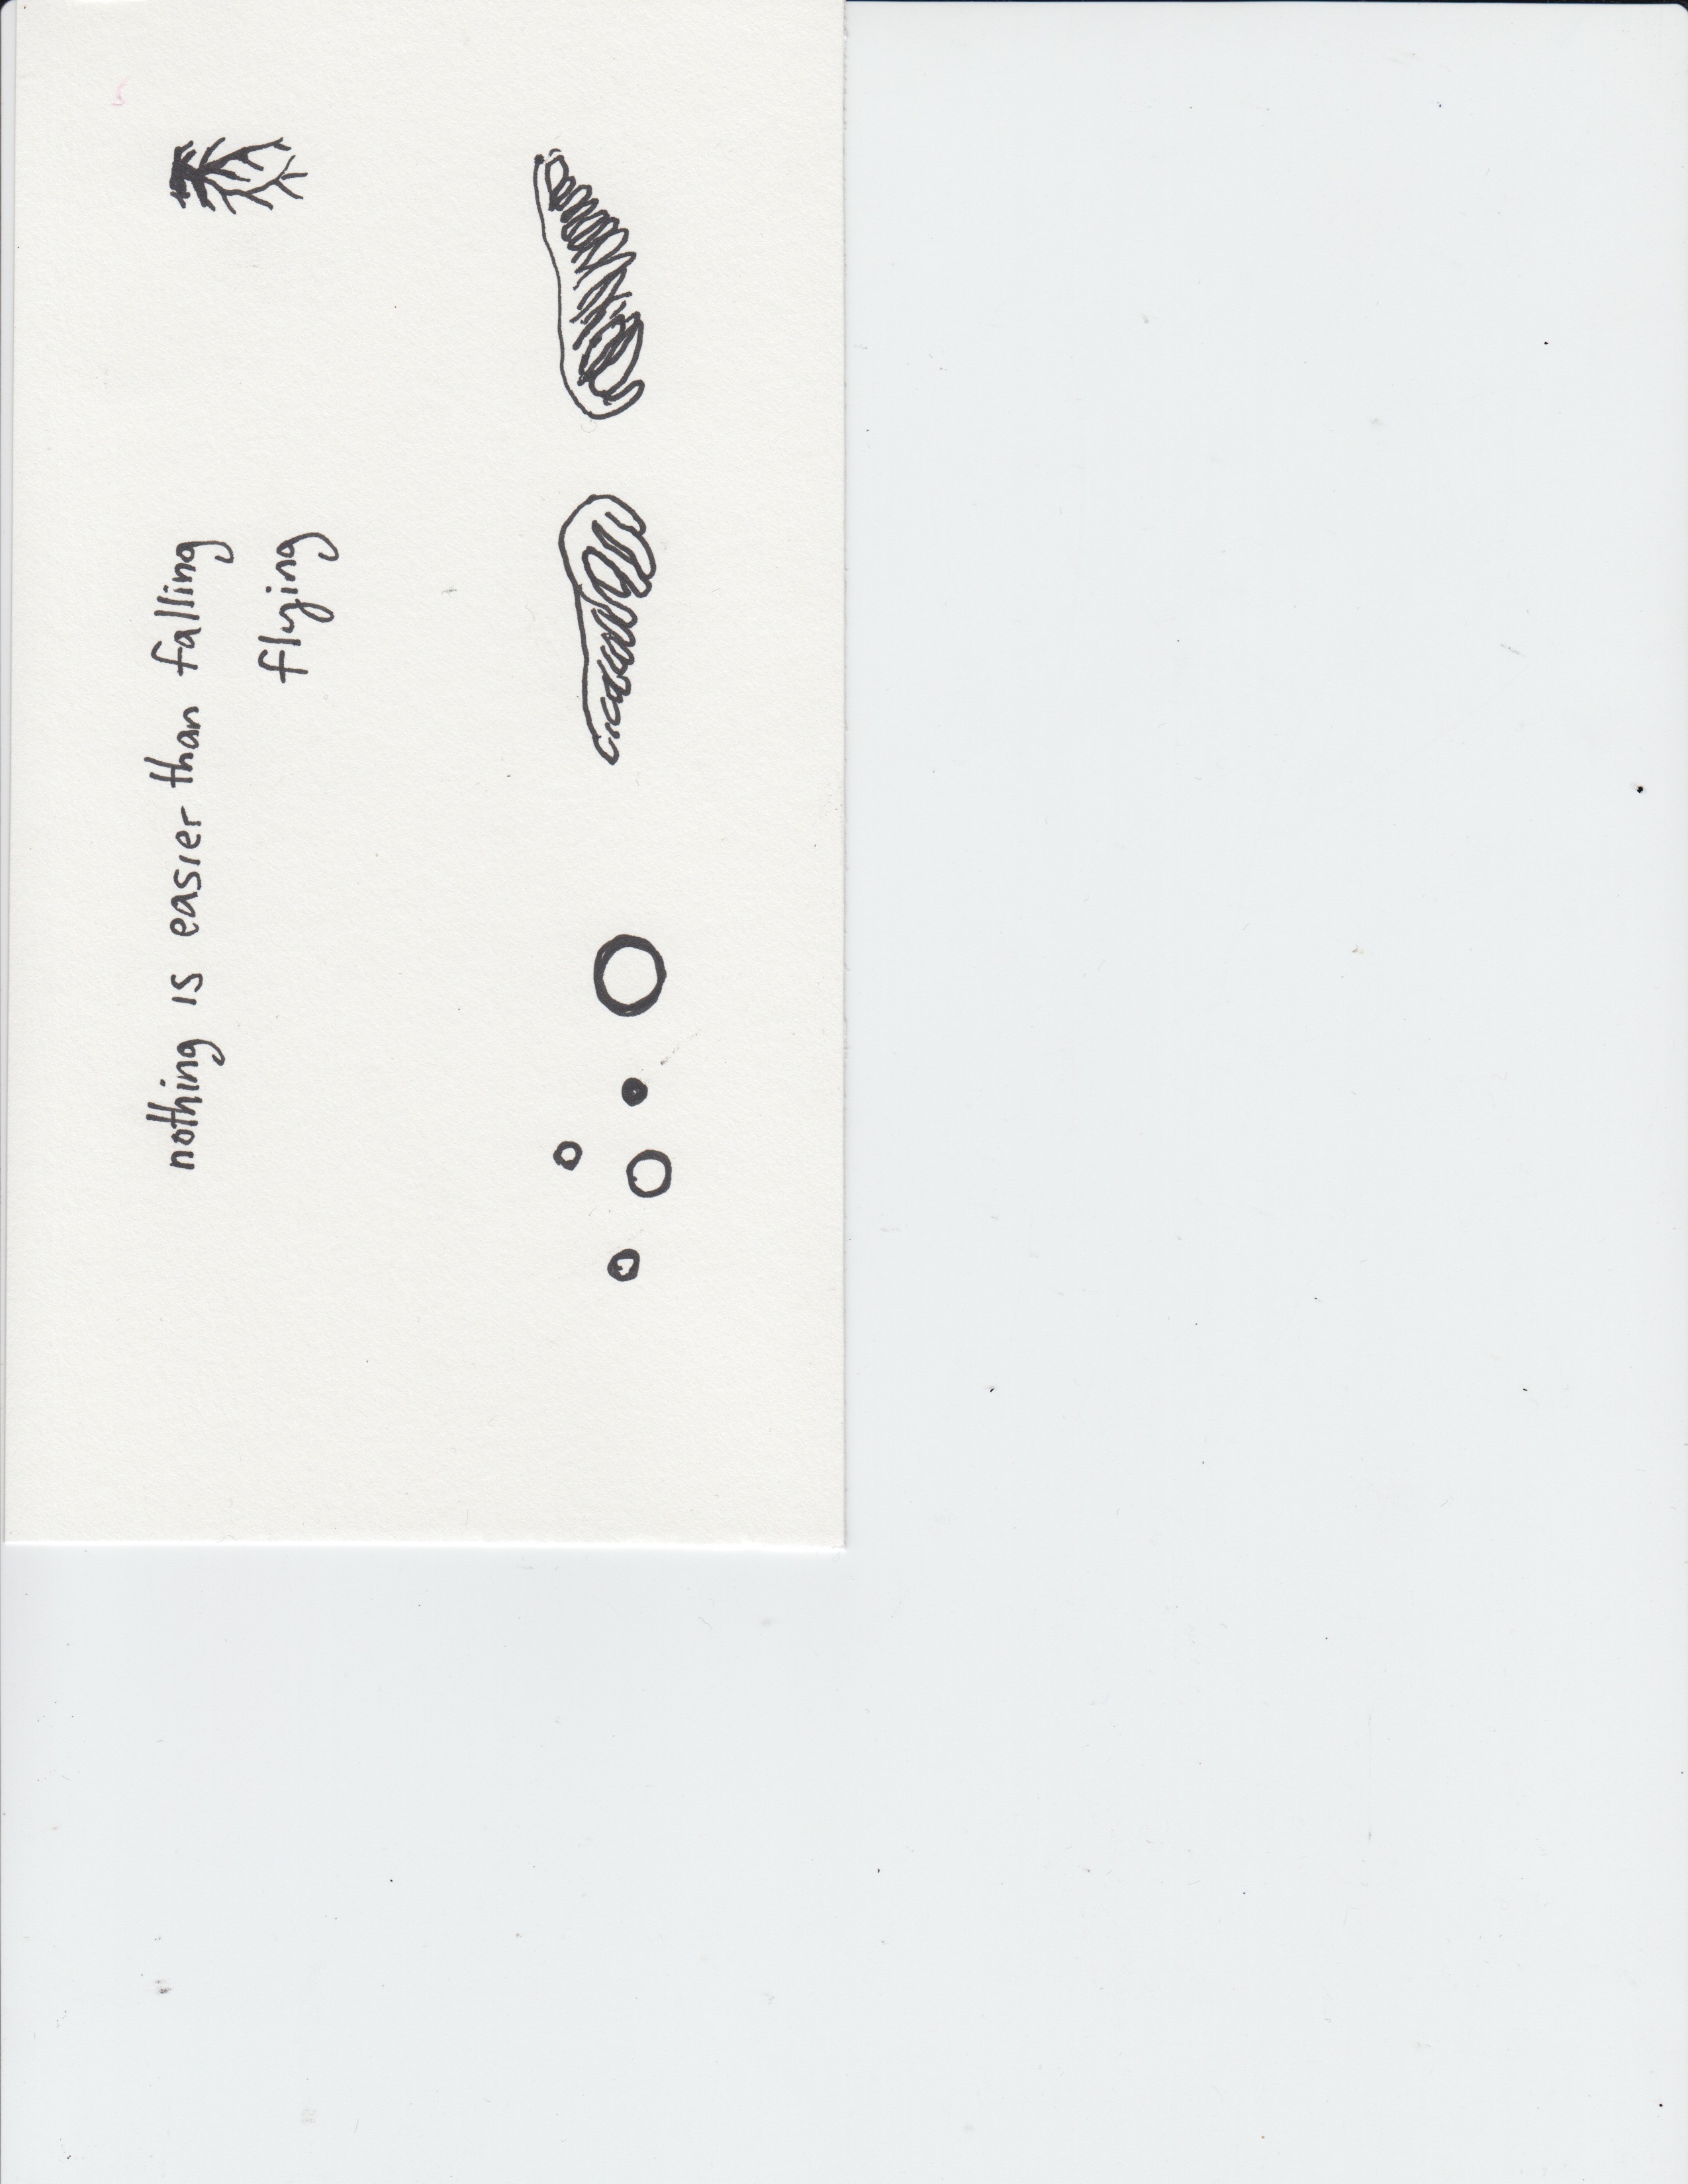 nothing is easier than falling
flying